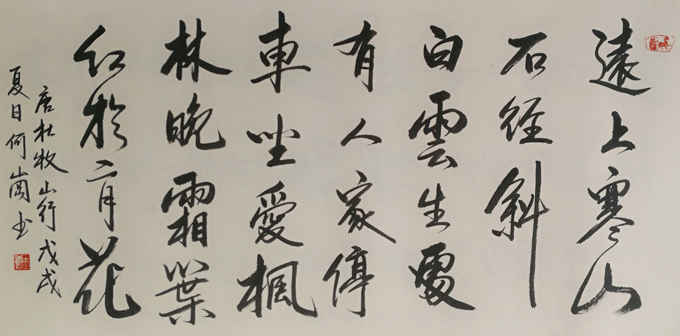 遠上寒山
石径斜
白雲生處
有人家停
車坐愛楓
林晚霜葉
红於二月花
唐杜牧山行戊戌
夏日何崗书